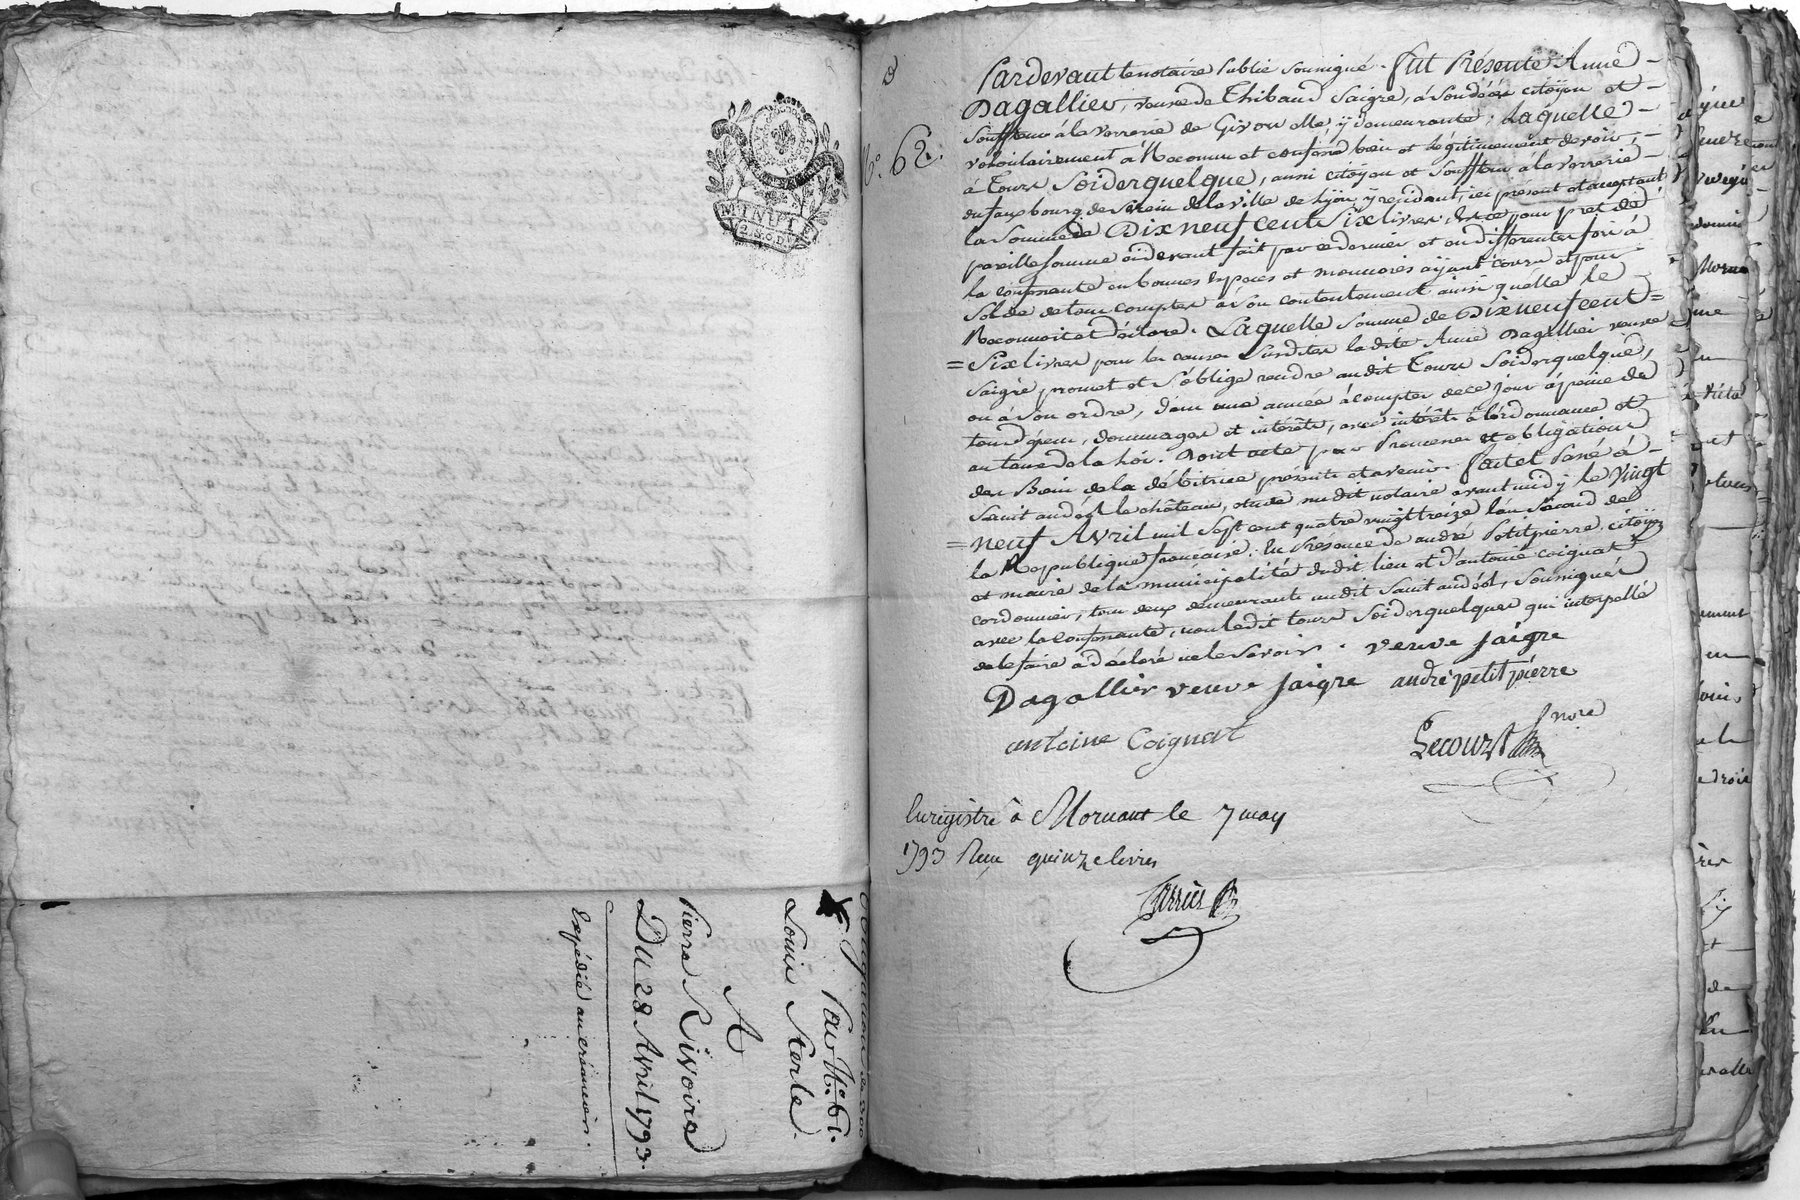 MINUTE
2.S.6.D
Obligation de 300
Par No. 61.
Louis Sterle
A
Pierre Rivoire
Du 28 Avril 1793.
Expédié au créancier.
No. 62.
Pardevant le notaire Public soussigné. Fut Présente Anne
Dagallier, veuve de Thibaud Saigre, à son décès citöyen et
souffleur à la verrerie de Givors elle ÿ demeurante; Laquelle
volontairement à Reconnu et confessé bien et légitimement devoir
à Tours Soiderquelque, aussi citöyen et souffleur à la verrerie
du fauxbourg de de la ville de ÿ résidant, ici présent et acceptant
la Somme de Dix neuf cent Six livres, Et ce pour pret de
pareille somme cidevant fait par ce dernier et en differentes fois à
la confessante en bonnes espèces et monnoies aÿant cours et pour
Solde de tous comptes à son contentement ainsi qu'elle le
Reconnoit et déclare. Laquelle somme de Dix neuf cent =
= Six livres pour les causes Susdites ladite Anne Dagallier veuve
Saigre promet et S'oblige rendre audit Tours Soiderquelque,
ou à son ordre, dans une année à compter de ce jour à peine de
tous dépens, dommages et intérêts, avec intérêts à l'ordonnance et
au taux de la Loi. Dont acte par Promesse et obligation
des Biens de la débitrice présents et avenir. Fait et Passé à
Saint andéol le château, étude dudit notaire avant midy le Vingt
= neuf Avril mil Sept cent quatre vingt treize l'an Second de
la République françaisse; En Présence de andré Petitpierre citöyen
et maire de la municipalité dudit lieu et d'antoine coignat
cordonnier, tous deux demeurants audit Saint andéol, soussignés
avec la confessante, non ledit tours Soiderquelque qui interpellé
de le faire a déclaré ne le savoir. veuve Saigre
Dagallier veuve Saigre andré petit pierre
antoine Coignat
Lecourt nore
Enregistré à Mornant le 7 may
1793 Reçu quinze livres